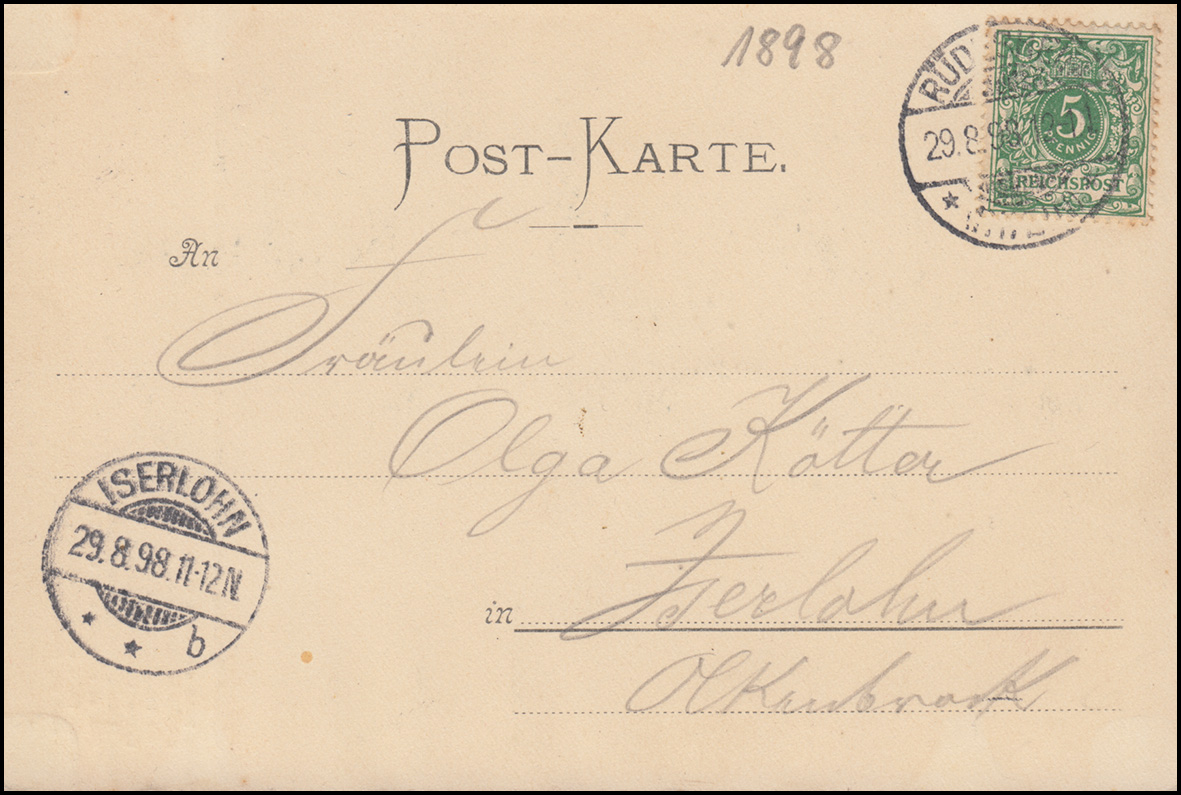 1898
29.8.98
5
PFENNIG
REICHSPOST
POST-KARTE.
An
Fräulein
Olga Kötter
ISERLOHN
29.8.98.11-12N.
b
in Iserlohn